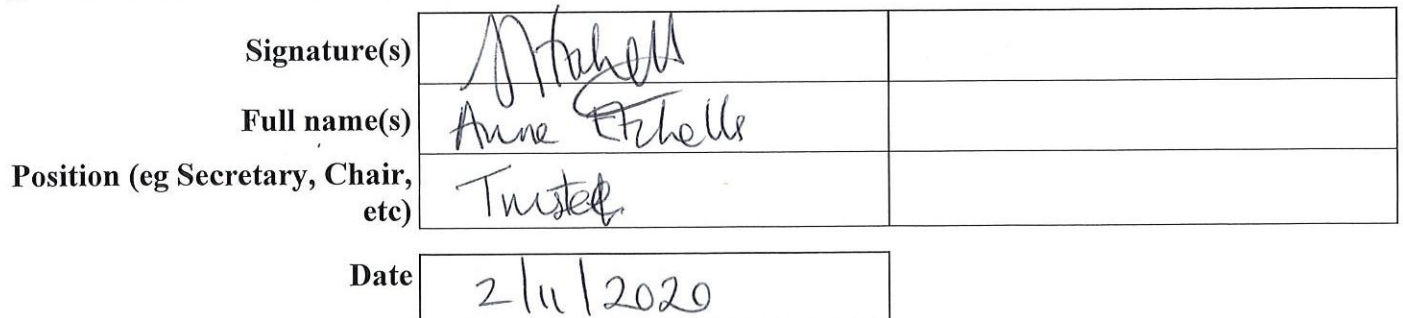 Signature(s)
Full name(s) Anne Etchells
Position (eg Secretary, Chair,
etc) Trustee
Date 2/11/2020